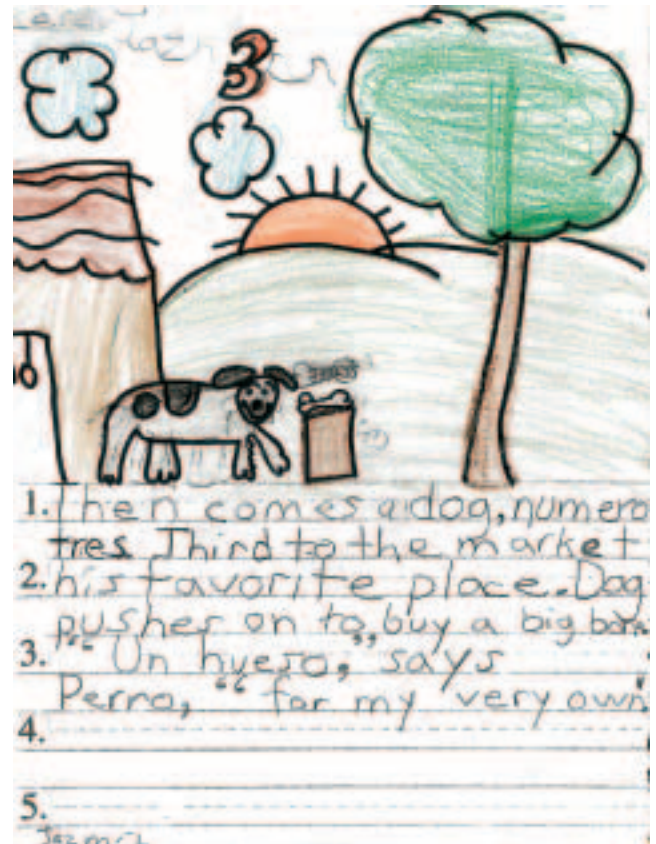 3
1. Then comes a dog, numero
tres. Third to the market
2. his favorite place. Dog
pushes on to, buy a big bone.
3. "Un hueso," says
Perro, "for my very own.
4.
5.